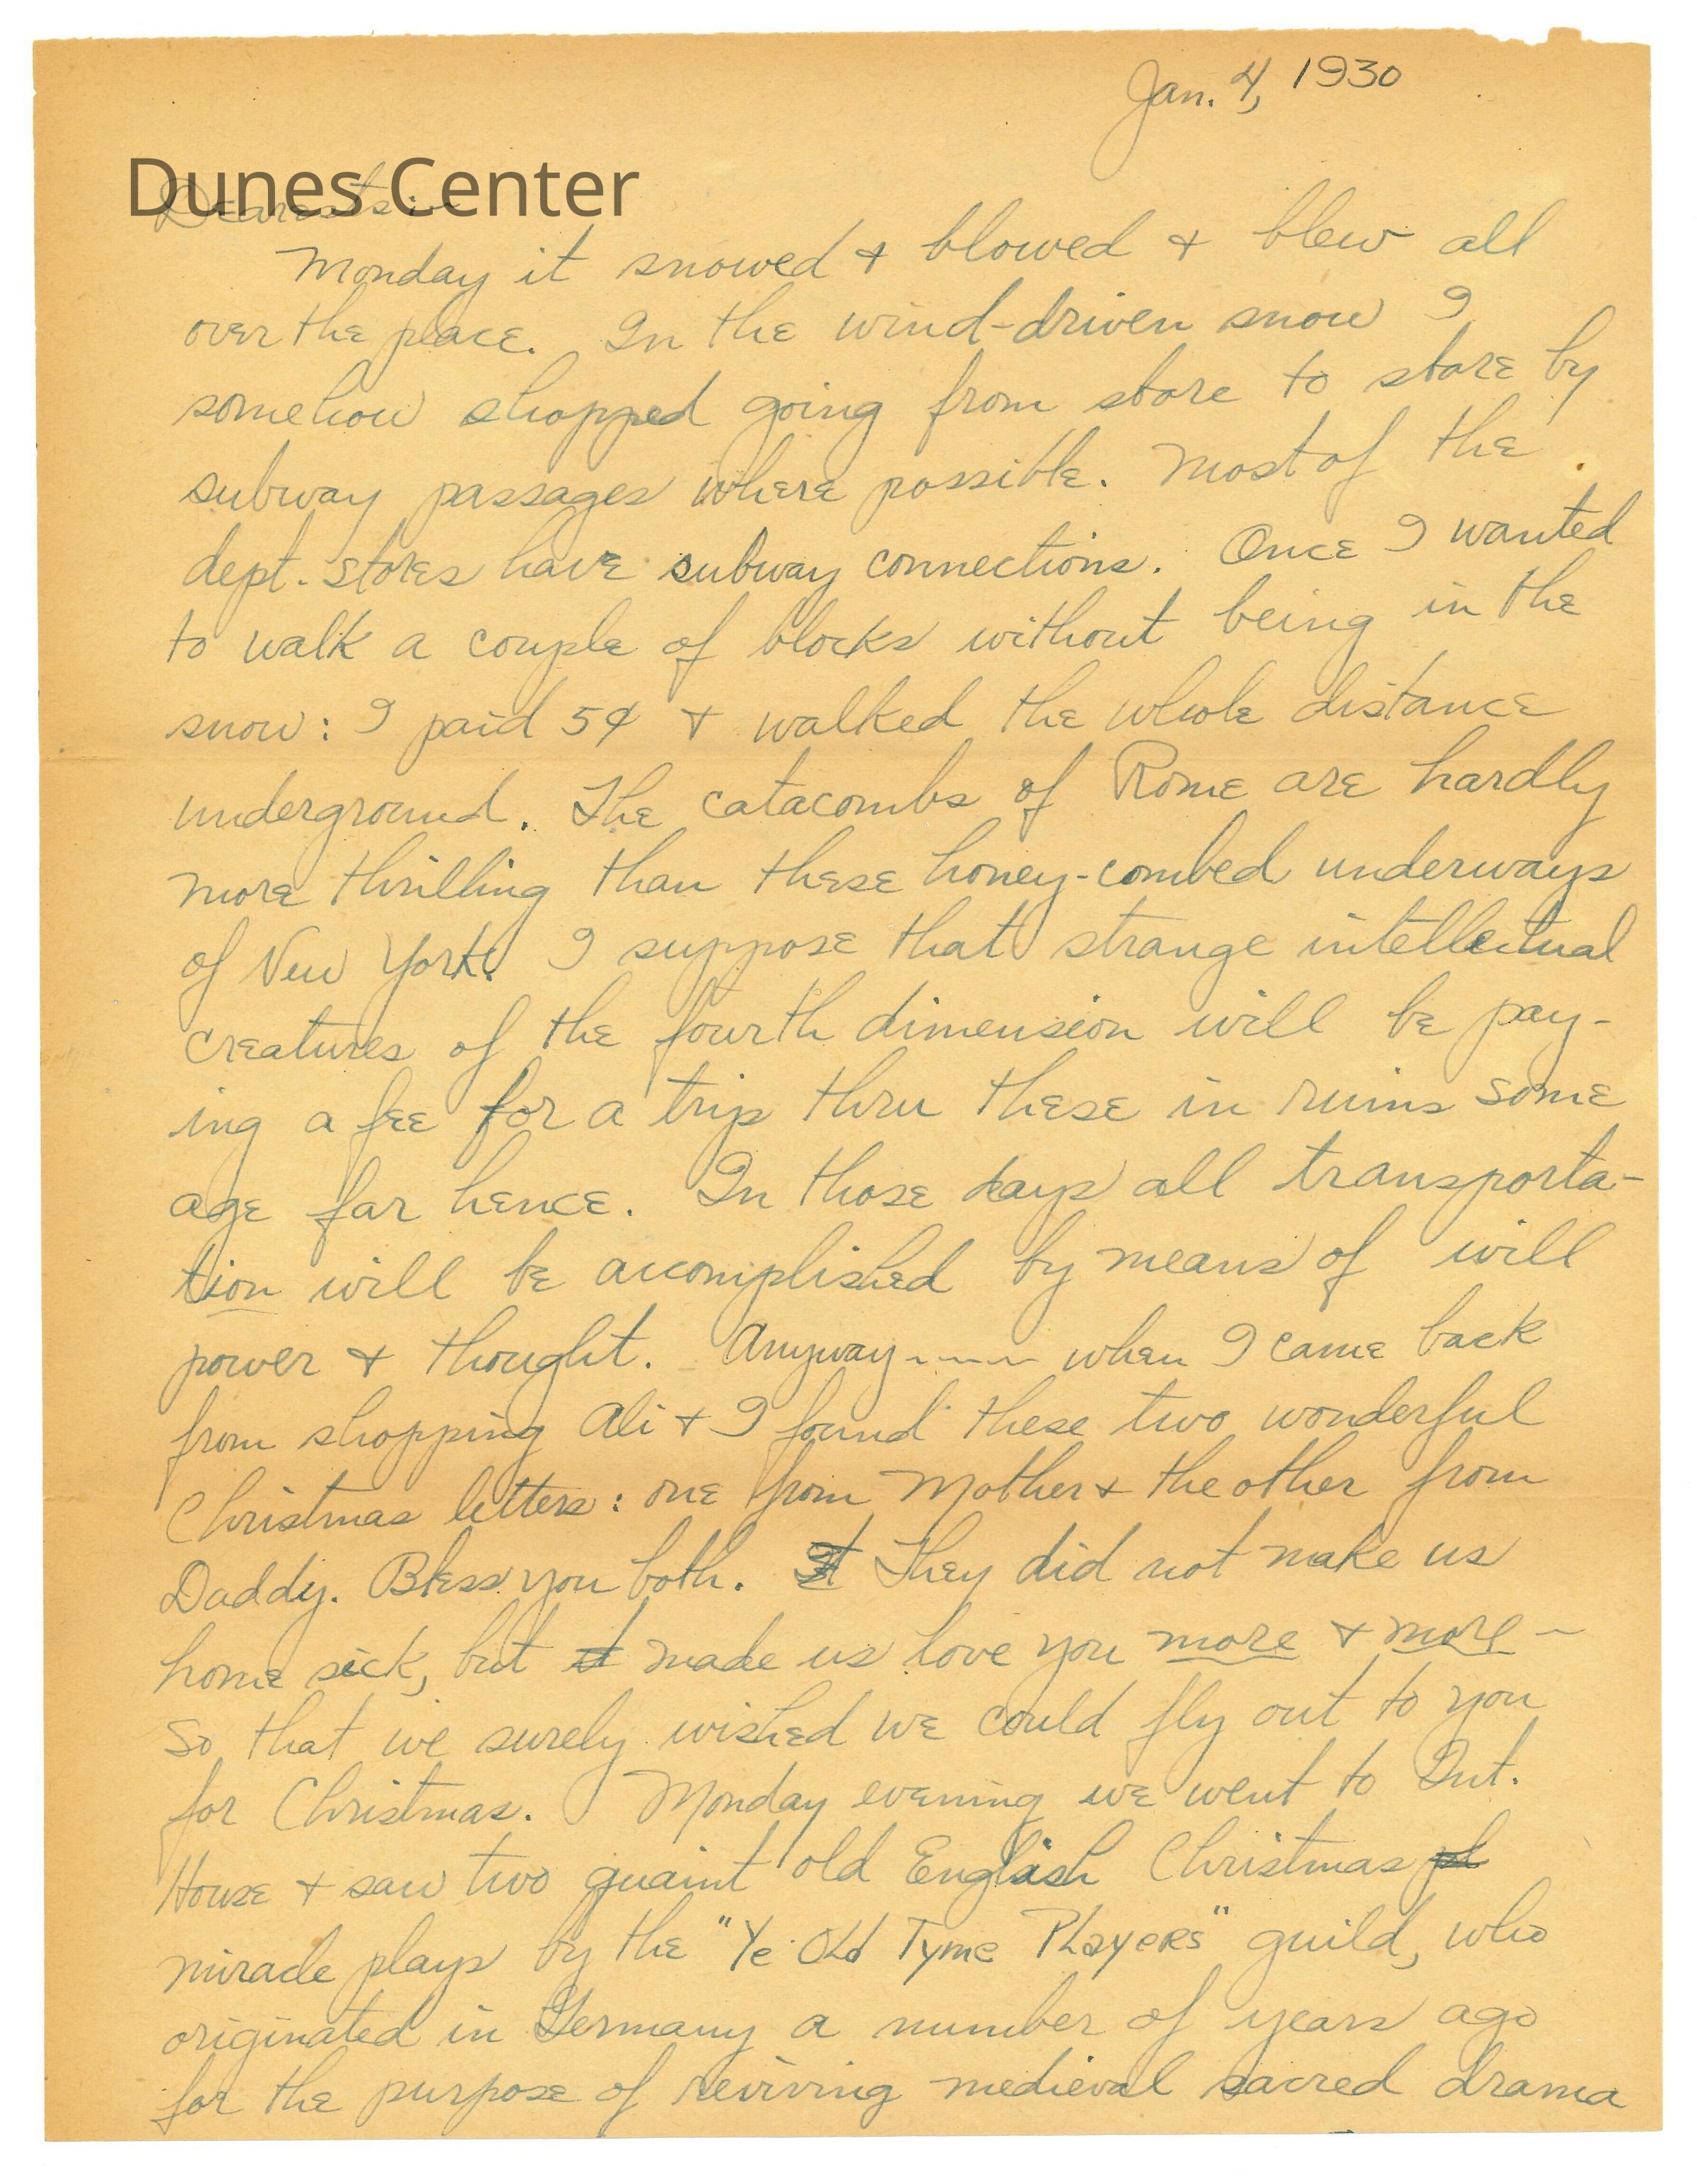 Jan. 4, 1930
Dunes Center
Dearests:-
Monday it snowed & blowed & blew all
over the place. In the wind-driven snow I
somehow shopped going from store to store by
subway passages where possible. Most of the
dept. stores have subway connections. Once I wanted
to walk a couple of blocks without being in the
snow: I paid 5¢ & walked the whole distance
underground. The catacombs of Rome are hardly
more thrilling than these honey-combed underways
of New York. I suppose that strange intellectual
creatures of the fourth dimension will be pay-
ing a fee for a trip thru these in ruins some
age far hence. In those days all transporta-
tion will be accomplished by means of will
power & thought. Anyway---- when I came back
from shopping Ali & I found these two wonderful
Christmas letters: one from Mother & the other from
Daddy. Bless you both. It They did not make us
home sick, but it made us love you more & more -
so that we surely wished we could fly out to you
for Christmas. Monday evening we went to Int.
House & saw two quaint old English Christmas pl
miracle plays by the "Ye Old Tyme Players" guild, who
originated in Germany a number of years ago
for the purpose of reviving medieval sacred drama